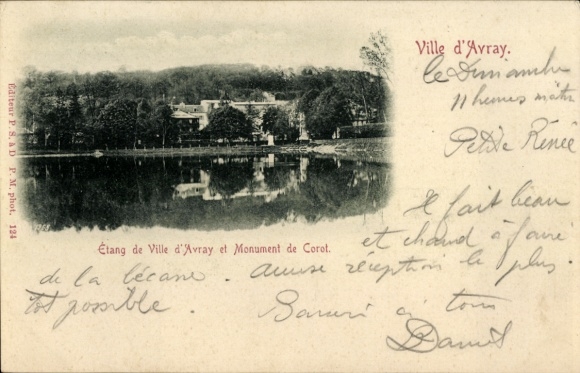 Ville d'Avray.
le Dimanche
11 heures matin
Petite Renée
Il fait beau
et chaud à faire
de la bécane. accuse réception le plus
tot possible. à tous
Daniel
Étang de Ville d'Avray et Monument de Corot.
Editeur P. S. à D P. M. phot. 124